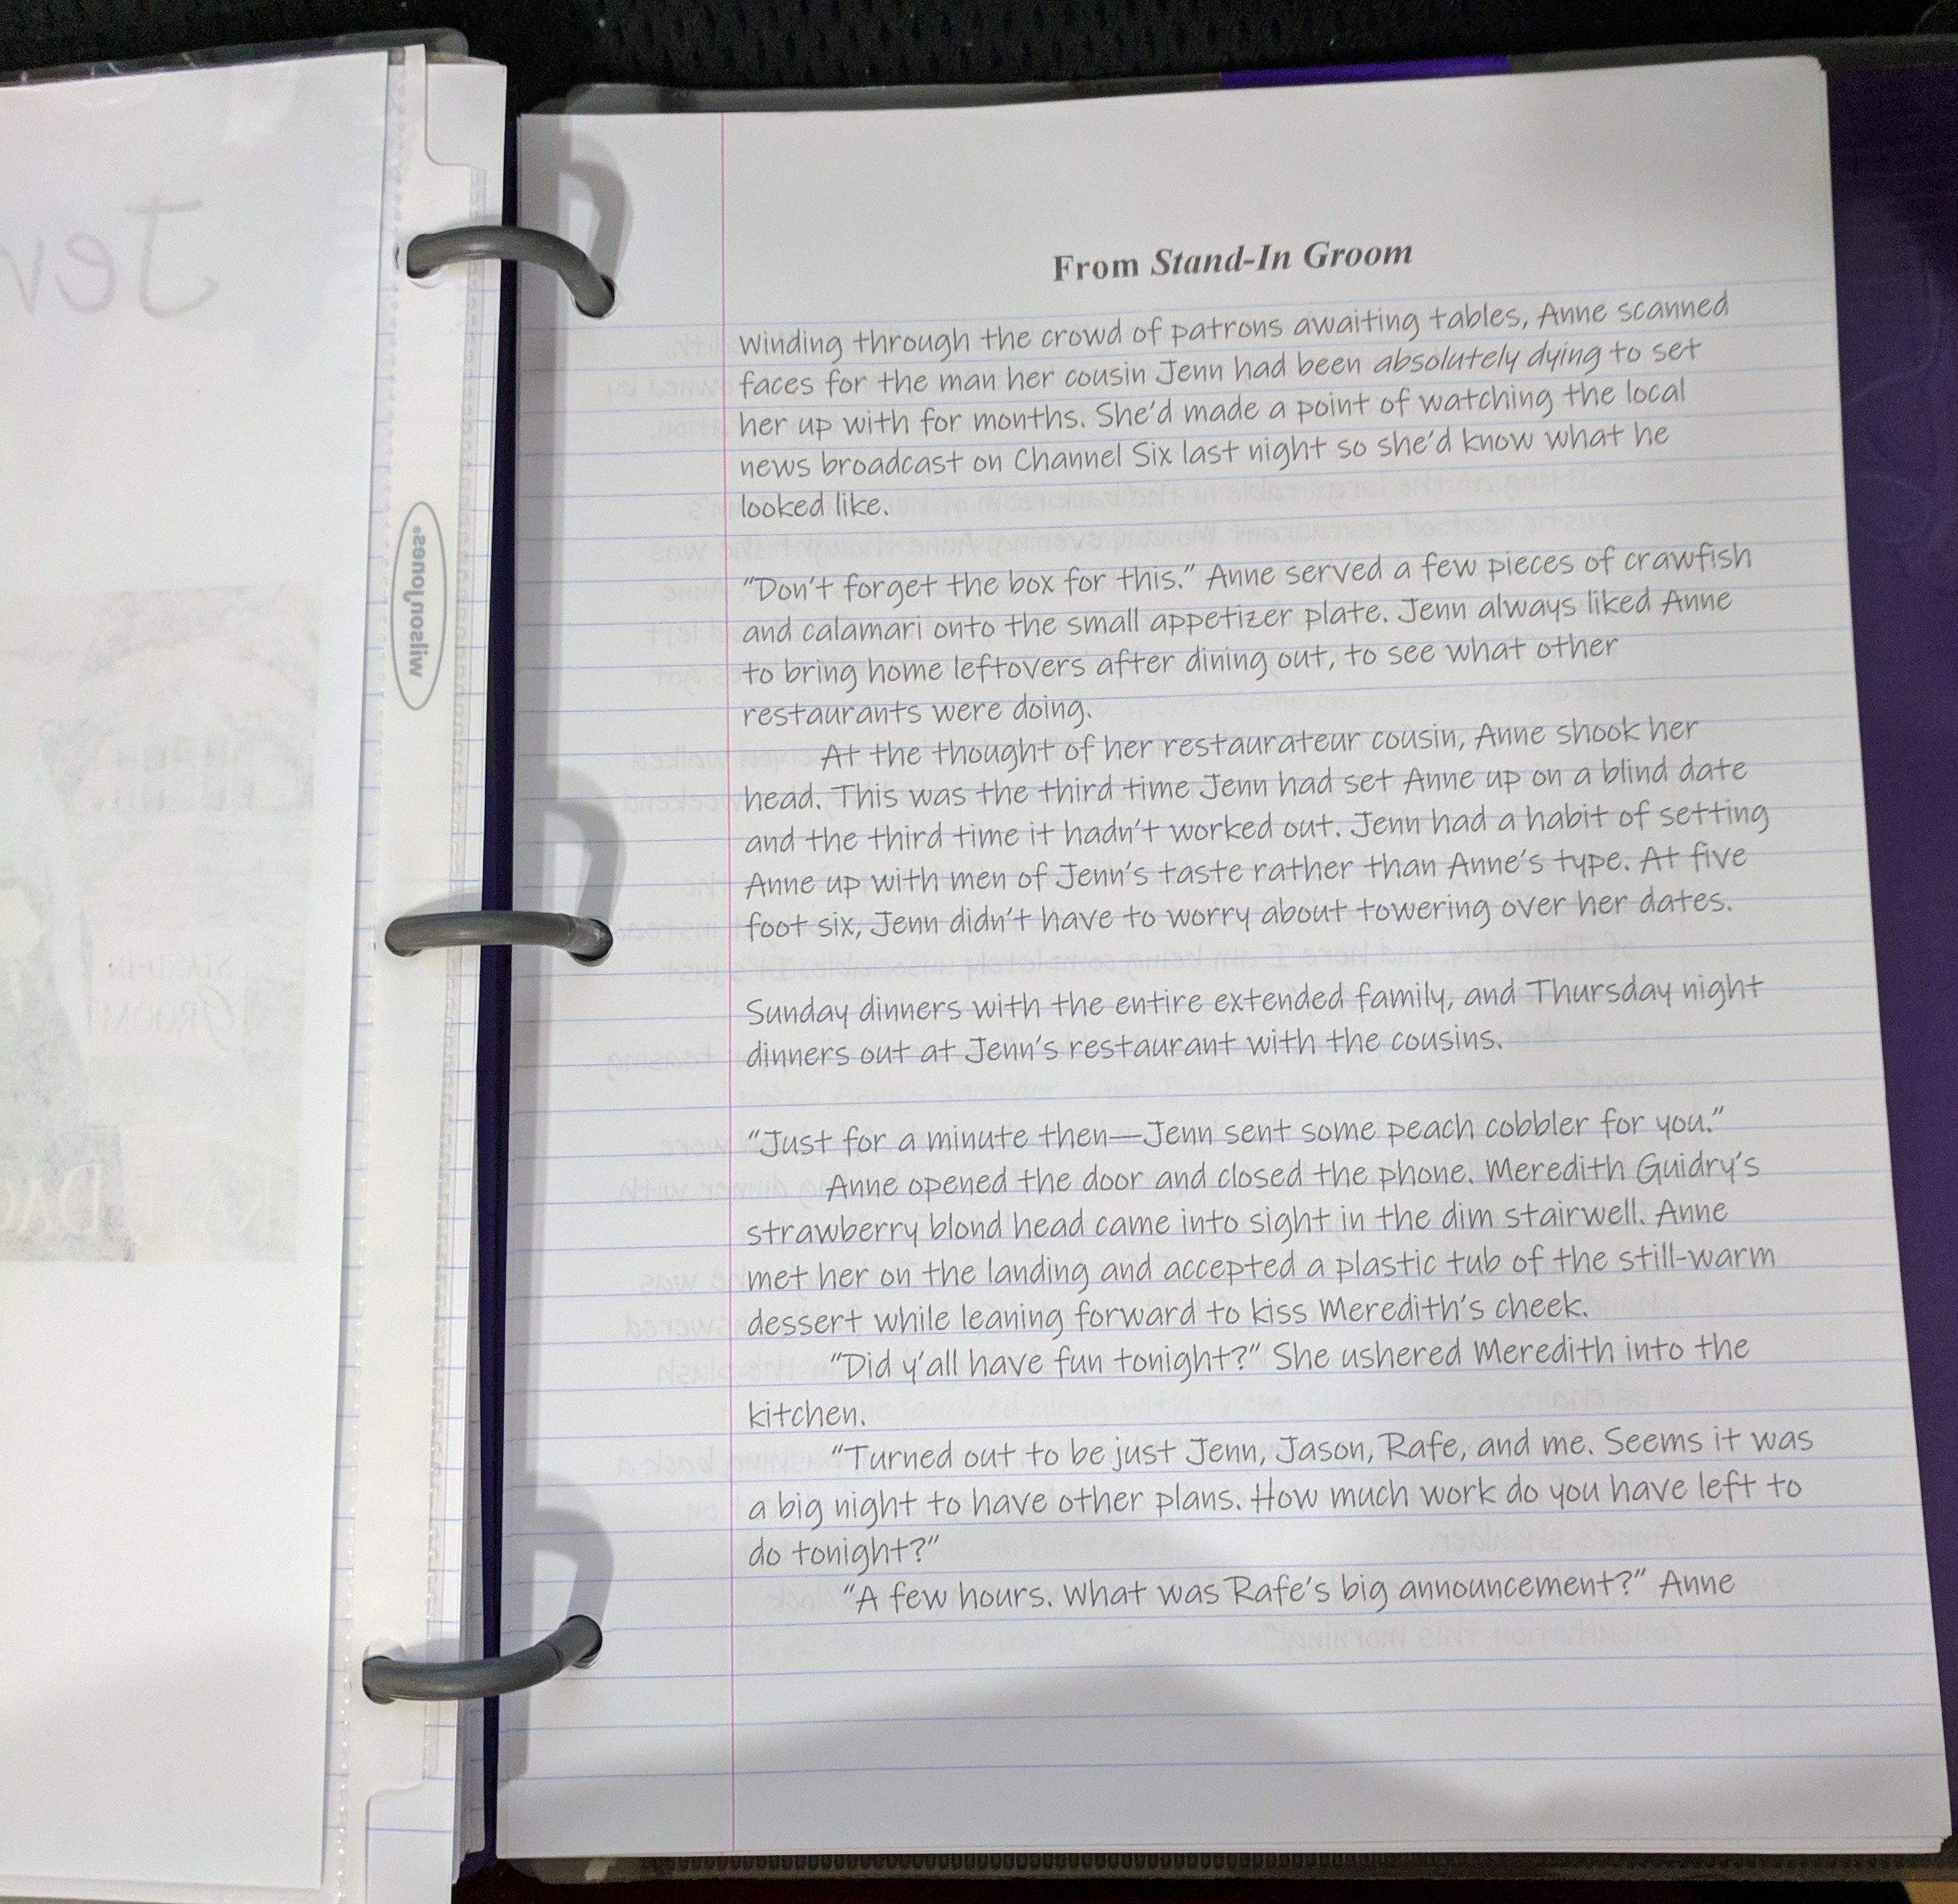 Jen
wilson jones.
STAND-IN
GROOM
From Stand-In Groom
Winding through the crowd of patrons awaiting tables, Anne scanned
faces for the man her cousin Jenn had been absolutely dying to set
her up with for months. She'd made a point of watching the local
news broadcast on Channel Six last night so she'd know what he
looked like.
"Don't forget the box for this." Anne served a few pieces of crawfish
and calamari onto the small appetizer plate. Jenn always liked Anne
to bring home leftovers after dining out, to see what other
restaurants were doing.
At the thought of her restaurateur cousin, Anne shook her
head. This was the third time Jenn had set Anne up on a blind date
and the third time it hadn't worked out. Jenn had a habit of setting
Anne up with men of Jenn's taste rather than Anne's type. At five
foot six, Jenn didn't have to worry about towering over her dates.
Sunday dinners with the entire extended family, and Thursday night
dinners out at Jenn's restaurant with the cousins.
"Just for a minute then—Jenn sent some peach cobbler for you."
Anne opened the door and closed the phone. Meredith Guidry's
strawberry blond head came into sight in the dim stairwell. Anne
met her on the landing and accepted a plastic tub of the still-warm
dessert while leaning forward to kiss Meredith's cheek.
"Did y'all have fun tonight?" She ushered Meredith into the
kitchen.
"Turned out to be just Jenn, Jason, Rafe, and me. Seems it was
a big night to have other plans. How much work do you have left to
do tonight?"
"A few hours. What was Rafe's big announcement?" Anne